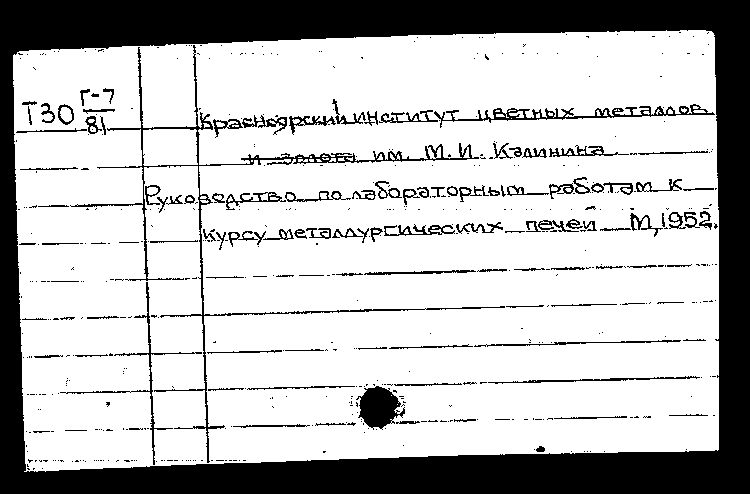 Т30 Г-7
81
Красноярский институт цветных металлов
и золота им. М.И. Калинина
Руководство по лабораторным работам к
курсу металлургических печей М, 1952.